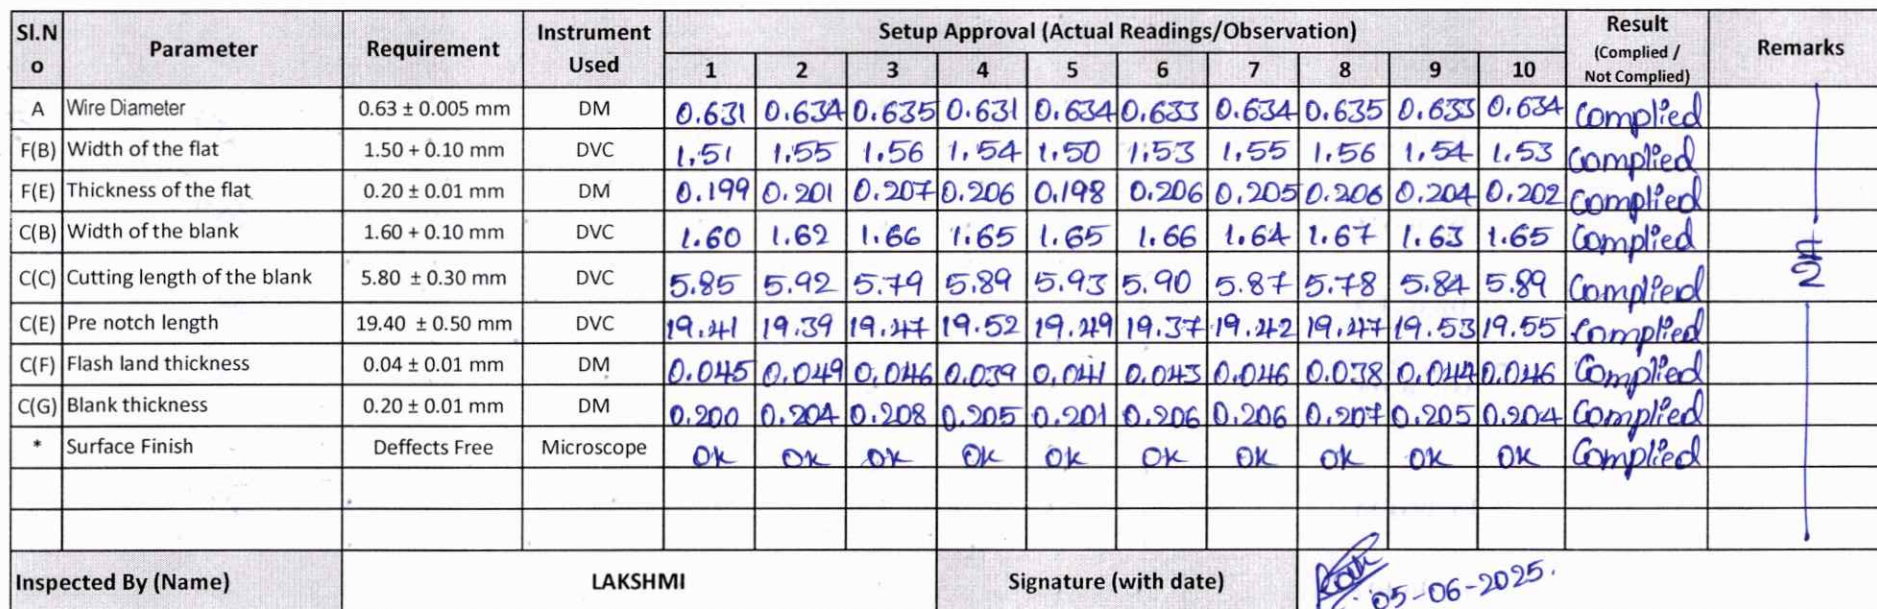 Sl.No Parameter Requirement Instrument Used Setup Approval (Actual Readings/Observation) Result (Complied / Not Complied) Remarks
1 2 3 4 5 6 7 8 9 10
A Wire Diameter 0.63 ± 0.005 mm DM 0.631 0.634 0.635 0.631 0.634 0.633 0.634 0.635 0.633 0.634 Complied
F(B) Width of the flat 1.50 + 0.10 mm DVC 1.51 1.55 1.56 1.54 1.50 1.53 1.55 1.56 1.54 1.53 Complied
F(E) Thickness of the flat 0.20 ± 0.01 mm DM 0.199 0.201 0.207 0.206 0.198 0.206 0.205 0.206 0.204 0.202 Complied
C(B) Width of the blank 1.60 + 0.10 mm DVC 1.60 1.62 1.66 1.65 1.65 1.66 1.64 1.67 1.63 1.65 Complied
C(C) Cutting length of the blank 5.80 ± 0.30 mm DVC 5.85 5.92 5.79 5.89 5.93 5.90 5.87 5.78 5.84 5.89 Complied
C(E) Pre notch length 19.40 ± 0.50 mm DVC 19.41 19.39 19.47 19.52 19.49 19.37 19.42 19.47 19.53 19.55 Complied
C(F) Flash land thickness 0.04 ± 0.01 mm DM 0.045 0.049 0.046 0.039 0.041 0.043 0.046 0.038 0.044 0.046 Complied
C(G) Blank thickness 0.20 ± 0.01 mm DM 0.200 0.204 0.208 0.205 0.201 0.206 0.206 0.207 0.205 0.204 Complied
* Surface Finish Deffects Free Microscope OK OK OK OK OK OK OK OK OK OK Complied
Inspected By (Name) LAKSHMI Signature (with date) 05-06-2025.